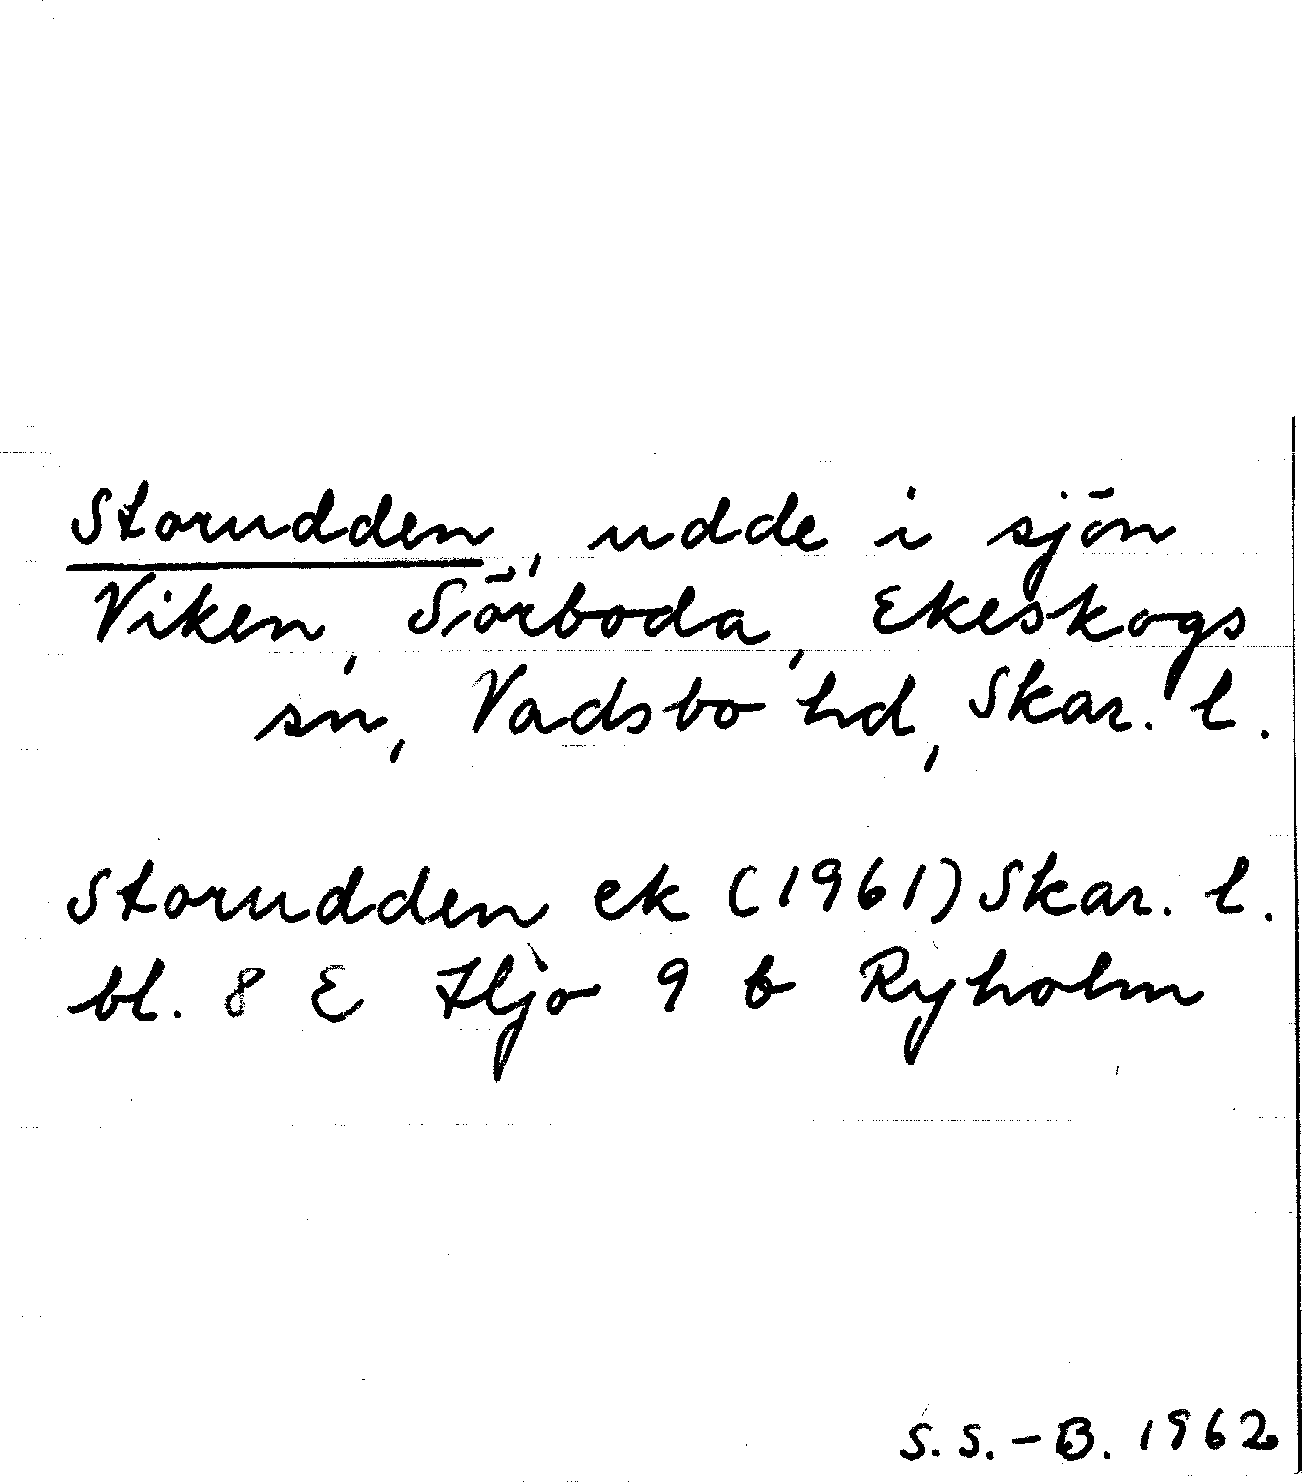 Storudden, udde i sjön
Viken, Sörboda, Ekeskogs
sn, Vadsbo hd, Skar. l.
Storudden ek (1961) Skar. l.
bl. 8 E Hjo 9 b Ryholm
S.S.-B. 1962